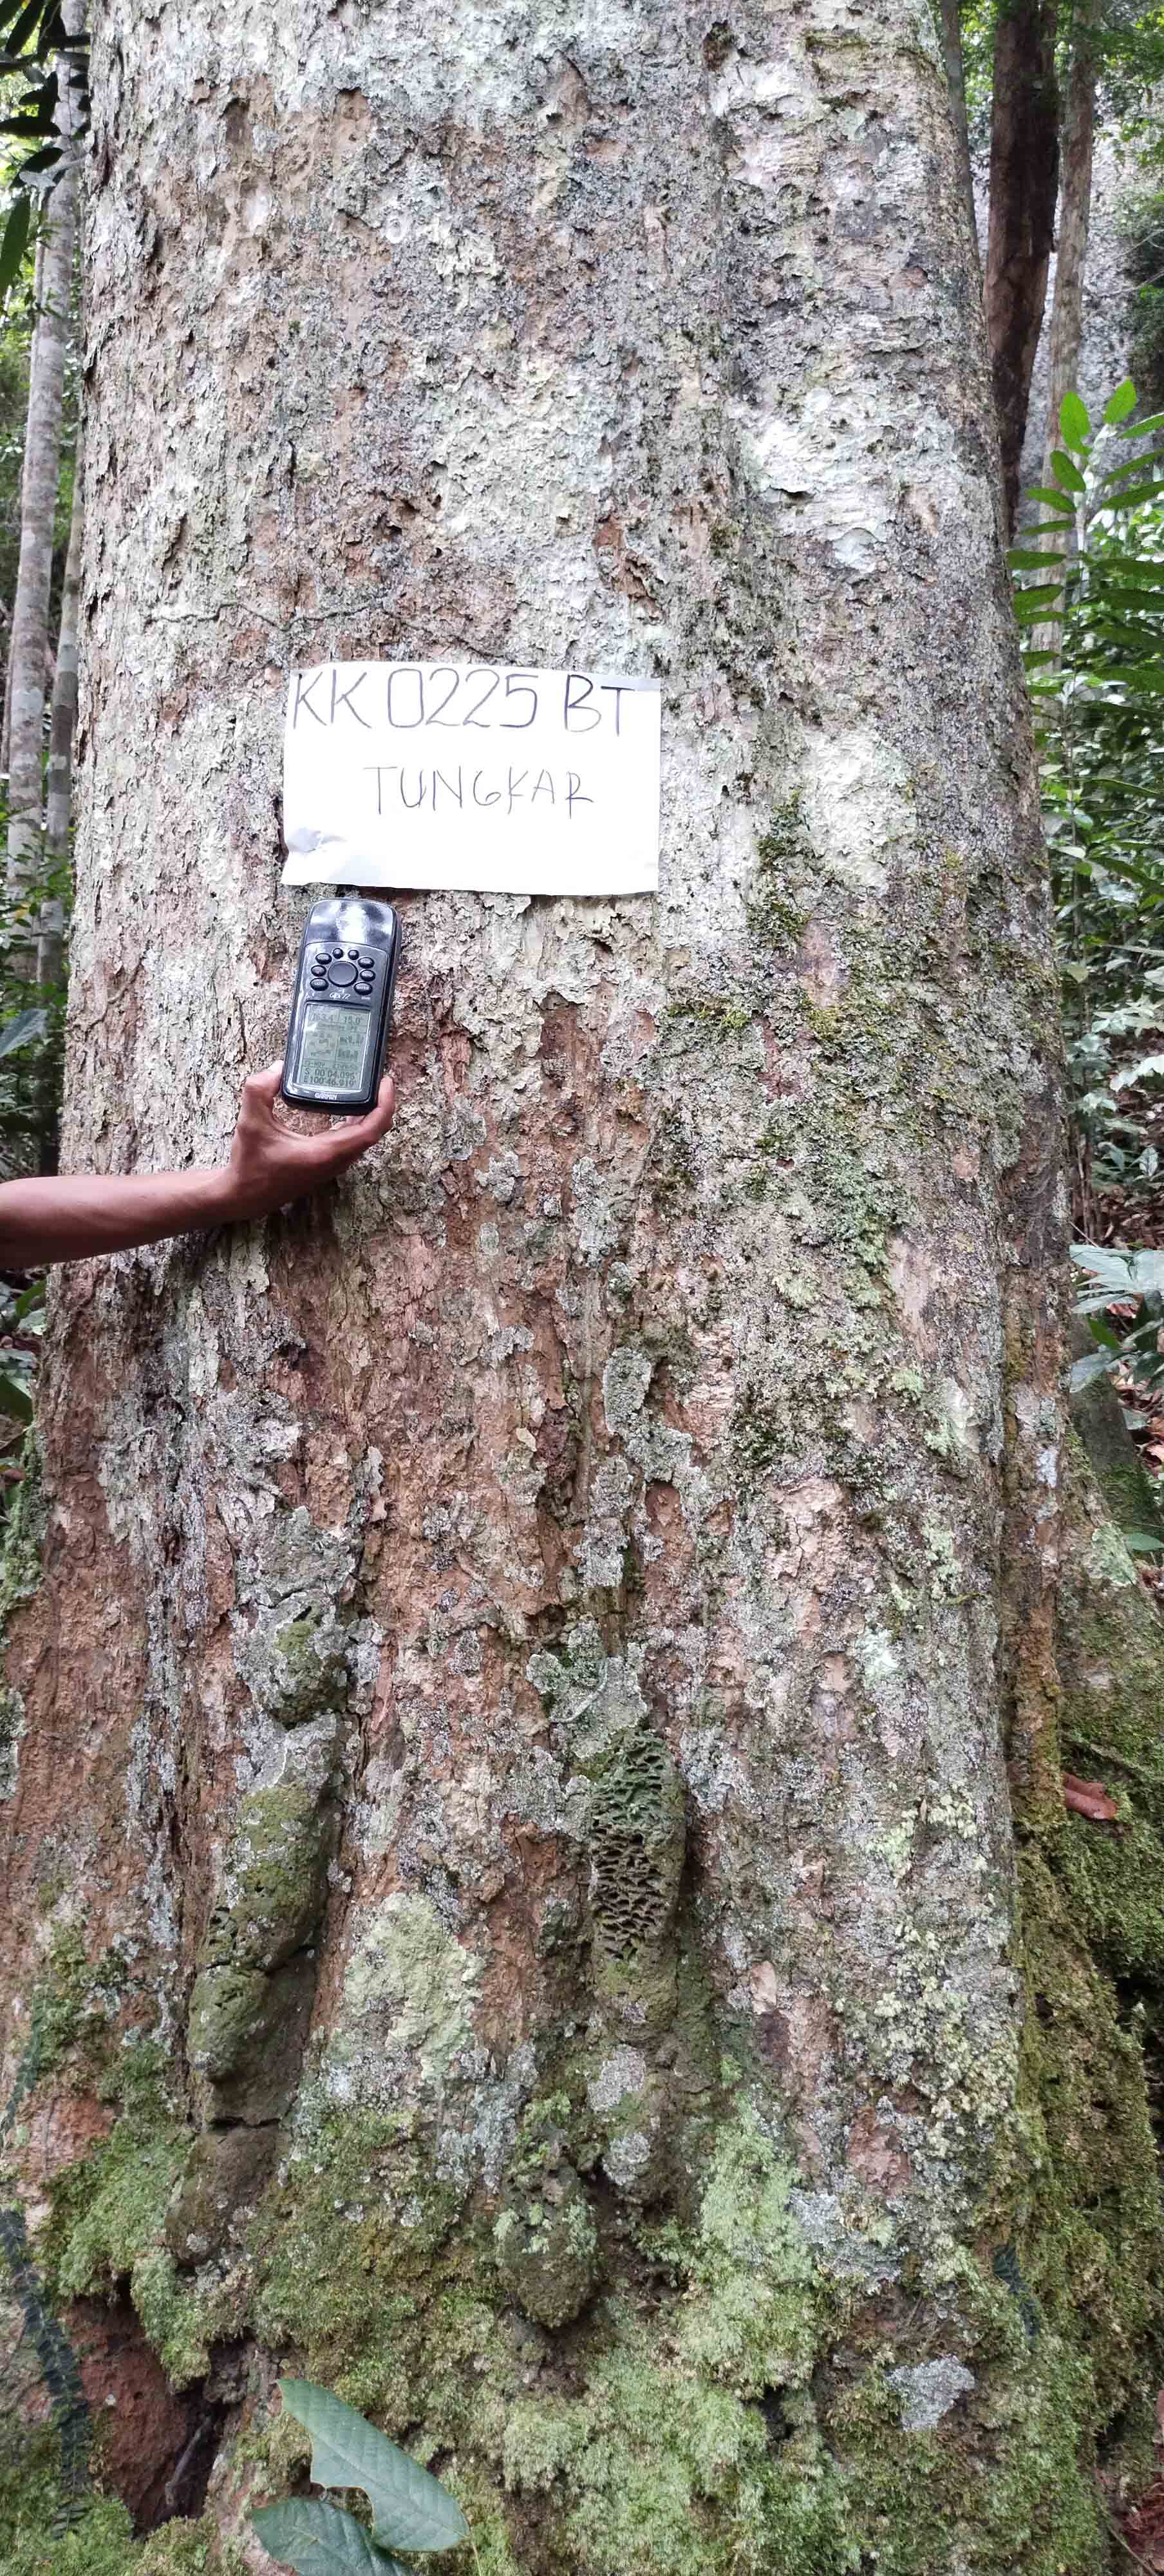 KK 0225 BT
TUNGKAR
S 00°04.095
E100°46.910
GARMIN